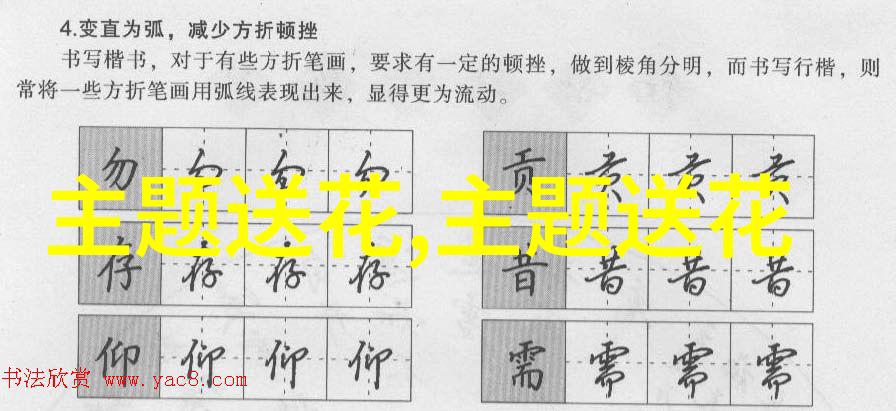 4.变直为弧，减少方折顿挫
书写楷书，对于有些方折笔画，要求有一定的顿挫，做到棱角分明，而书写行楷，则
常将一些方折笔画用弧线表现出来，显得更为流动。
勿 勿 勿 勿 贡 贡 贡 贡
主题送花,主题送花
存 存 存 存 昔 昔 昔 昔
仰 仰 仰 仰 需 需 需 需
书法欣赏 www.yac8.com